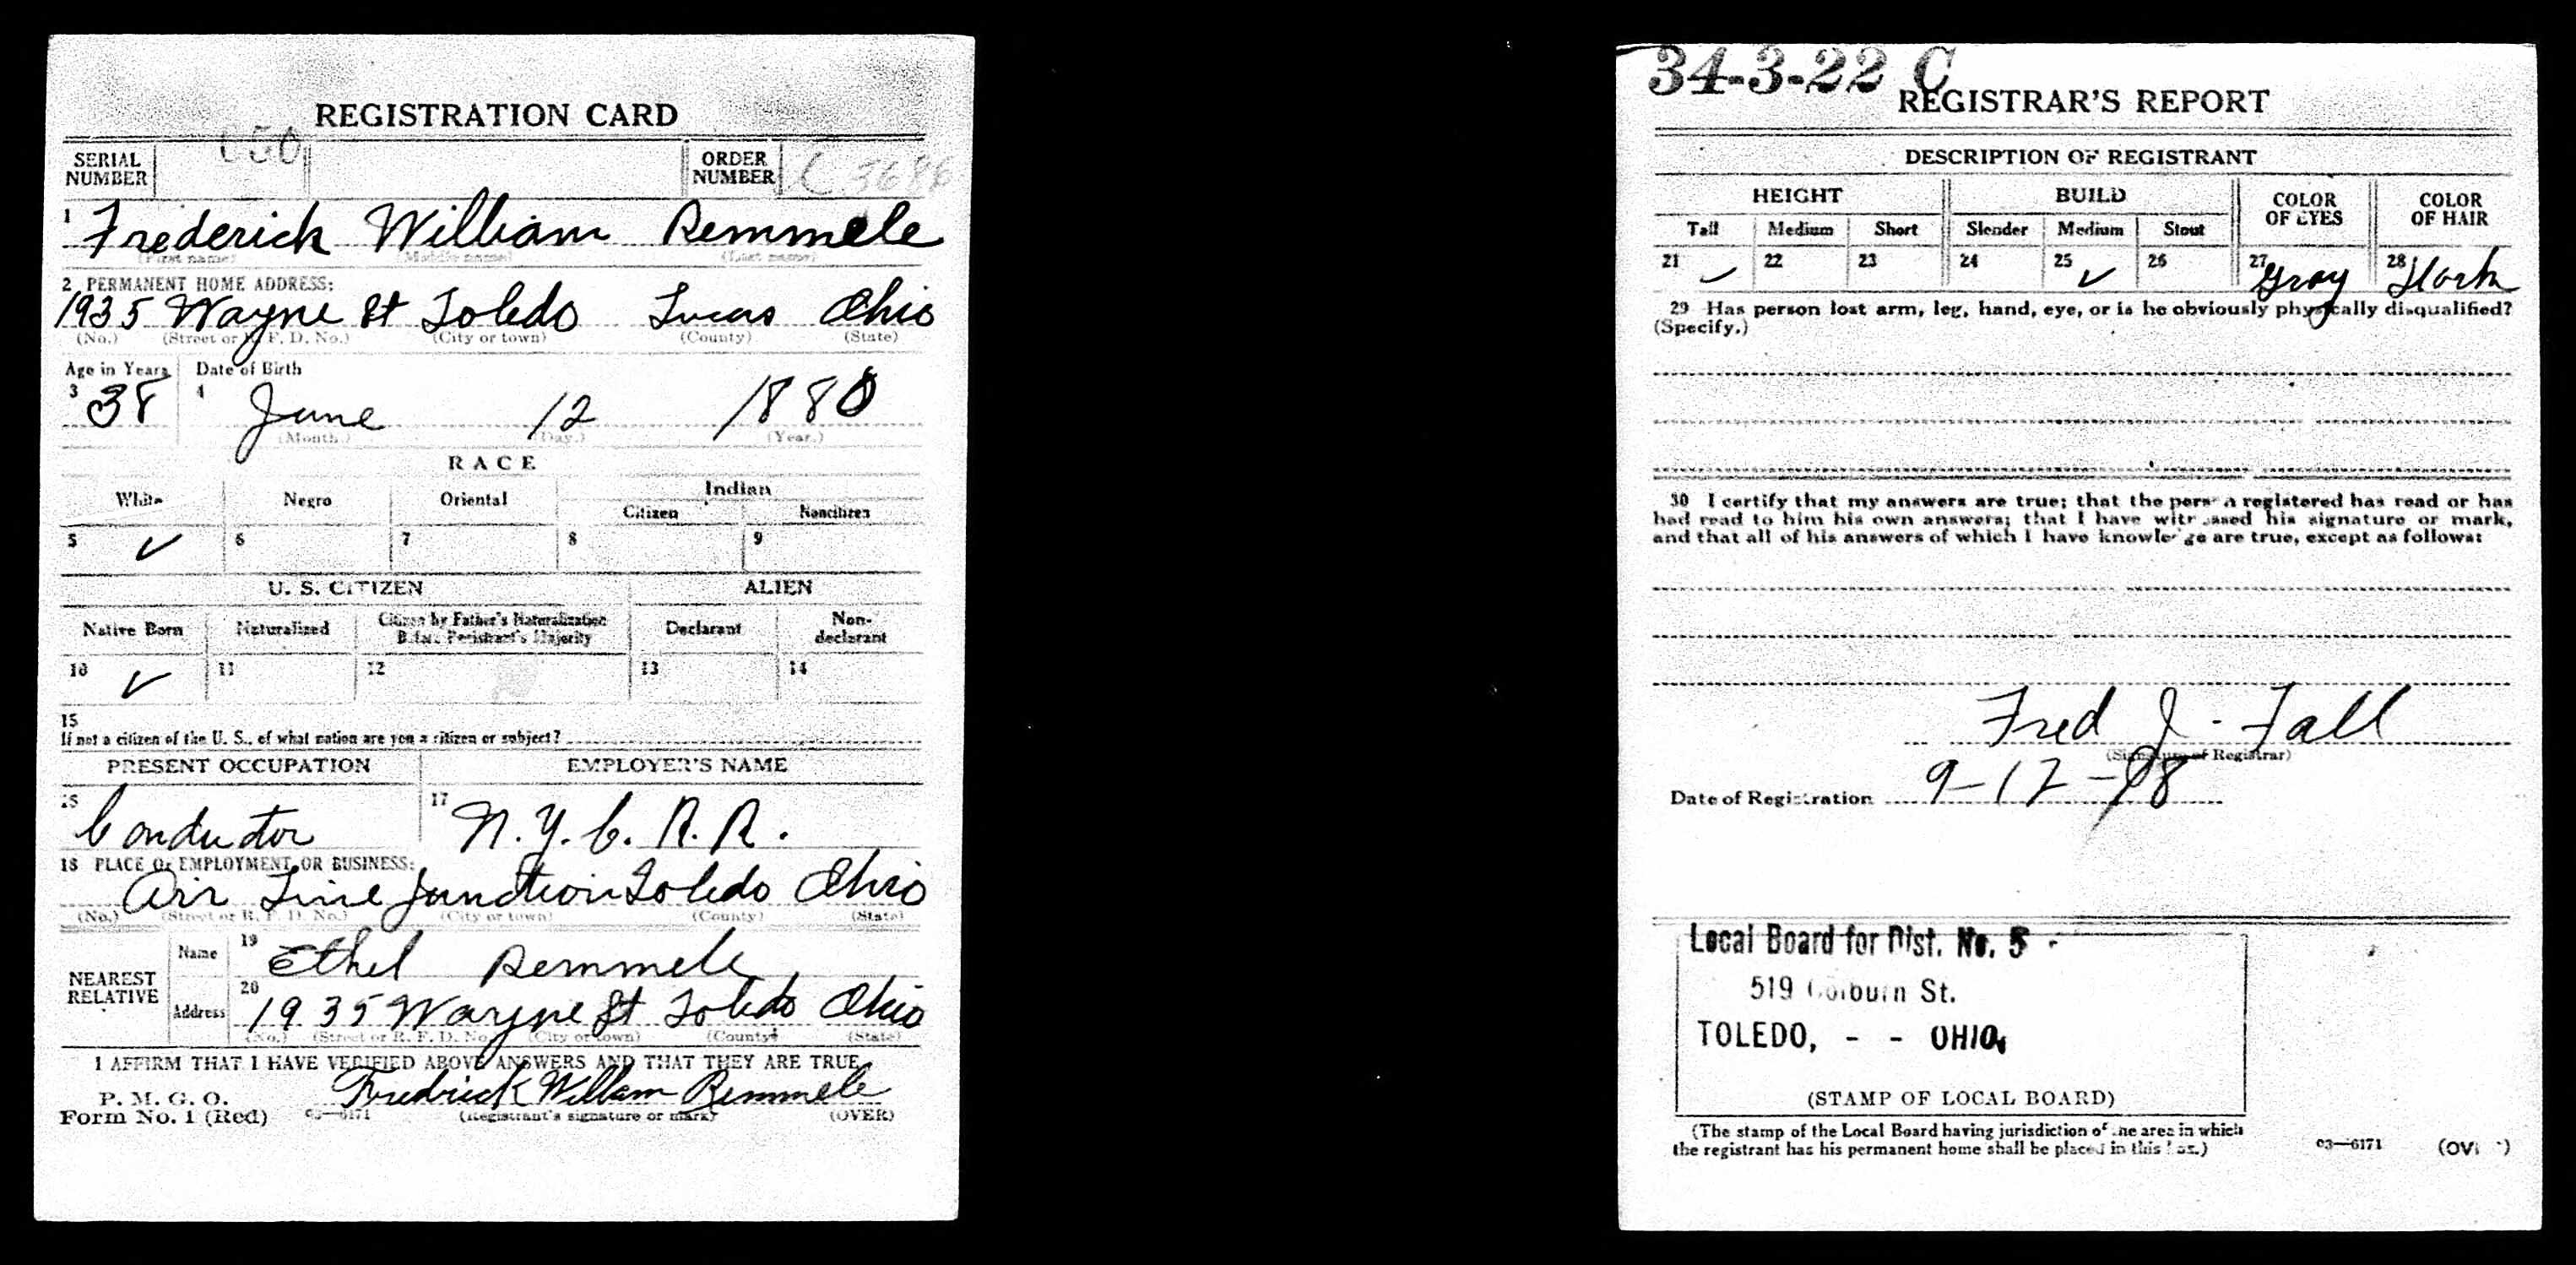 REGISTRATION CARD
SERIAL NUMBER
ORDER NUMBER C 3686
1 Frederick William Remmele
(First name) (Middle name) (Last name)
2 PERMANENT HOME ADDRESS:
1935 Wayne St Toledo Lucas Ohio
(No.) (Street or R. F. D. No.) (City or town) (County) (State)
Age in Years Date of Birth
3 38 4 June 12 1880
(Month.) (Day.) (Year.)
RACE
White Negro Oriental Indian
Citizen Noncitizen
5 ✓ 6 7 8 9
U. S. CITIZEN ALIEN
Native Born Naturalized Citizen by Father's Naturalization Before Registrant's Majority Declarant Non-declarant
10 ✓ 11 12 13 14
15
If not a citizen of the U. S., of what nation are you a citizen or subject?
PRESENT OCCUPATION EMPLOYER'S NAME
16 Conductor 17 N. Y. C. R. R.
18 PLACE OF EMPLOYMENT OR BUSINESS:
Air Line Junction Toledo Ohio
(No.) (Street or R. F. D. No.) (City or town) (County) (State)
NEAREST RELATIVE
Name 19 Ethel Remmele
Address 20 1935 Wayne St Toledo Ohio
(No.) (Street or R. F. D. No.) (City or town) (County) (State)
I AFFIRM THAT I HAVE VERIFIED ABOVE ANSWERS AND THAT THEY ARE TRUE
P. M. G. O.
Form No. 1 (Red) 03—6171 Fredrick William Remmele
(Registrant's signature or mark) (OVER)
34-3-22 C
REGISTRAR'S REPORT
DESCRIPTION OF REGISTRANT
HEIGHT BUILD COLOR OF EYES COLOR OF HAIR
Tall Medium Short Slender Medium Stout
21 ✓ 22 23 24 25 ✓ 26 27 Gray 28 Dark
29 Has person lost arm, leg, hand, eye, or is he obviously physically disqualified?
(Specify.)
30 I certify that my answers are true; that the person registered has read or has
had read to him his own answers; that I have witnessed his signature or mark,
and that all of his answers of which I have knowledge are true, except as follows:
Fred J. Fall
(Signature of Registrar)
Date of Registration 9-12-18
Local Board for Dist. No. 5
519 Colburn St.
TOLEDO, - - OHIO,
(STAMP OF LOCAL BOARD)
(The stamp of the Local Board having jurisdiction of the area in which
the registrant has his permanent home shall be placed in this box.)
03—6171 (OVER)